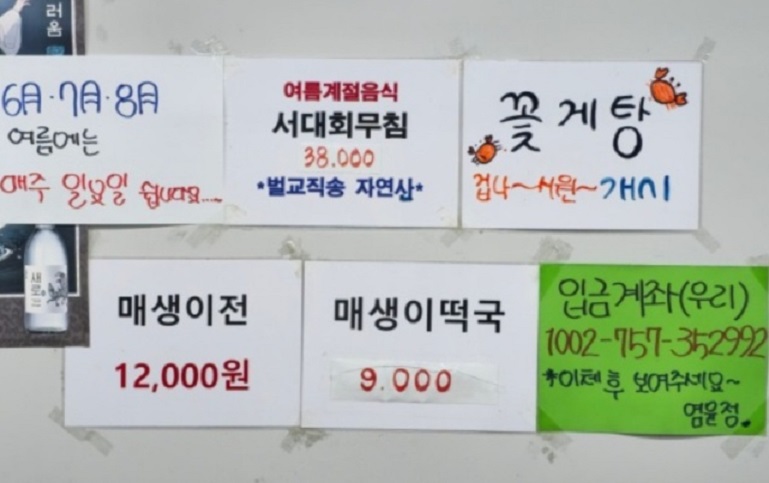 러움
6月·7月·8月
여름에는
매주 일요일 쉽니다요....
여름계절음식
서대회무침
38.000
*벌교직송 자연산*
꽃게탕
겁나~시원~개시
새로
매생이전
12,000원
매생이떡국
9.000
입금계좌(우리)
1002-757-352992
*이체 후 보여주세요~
염윤정.